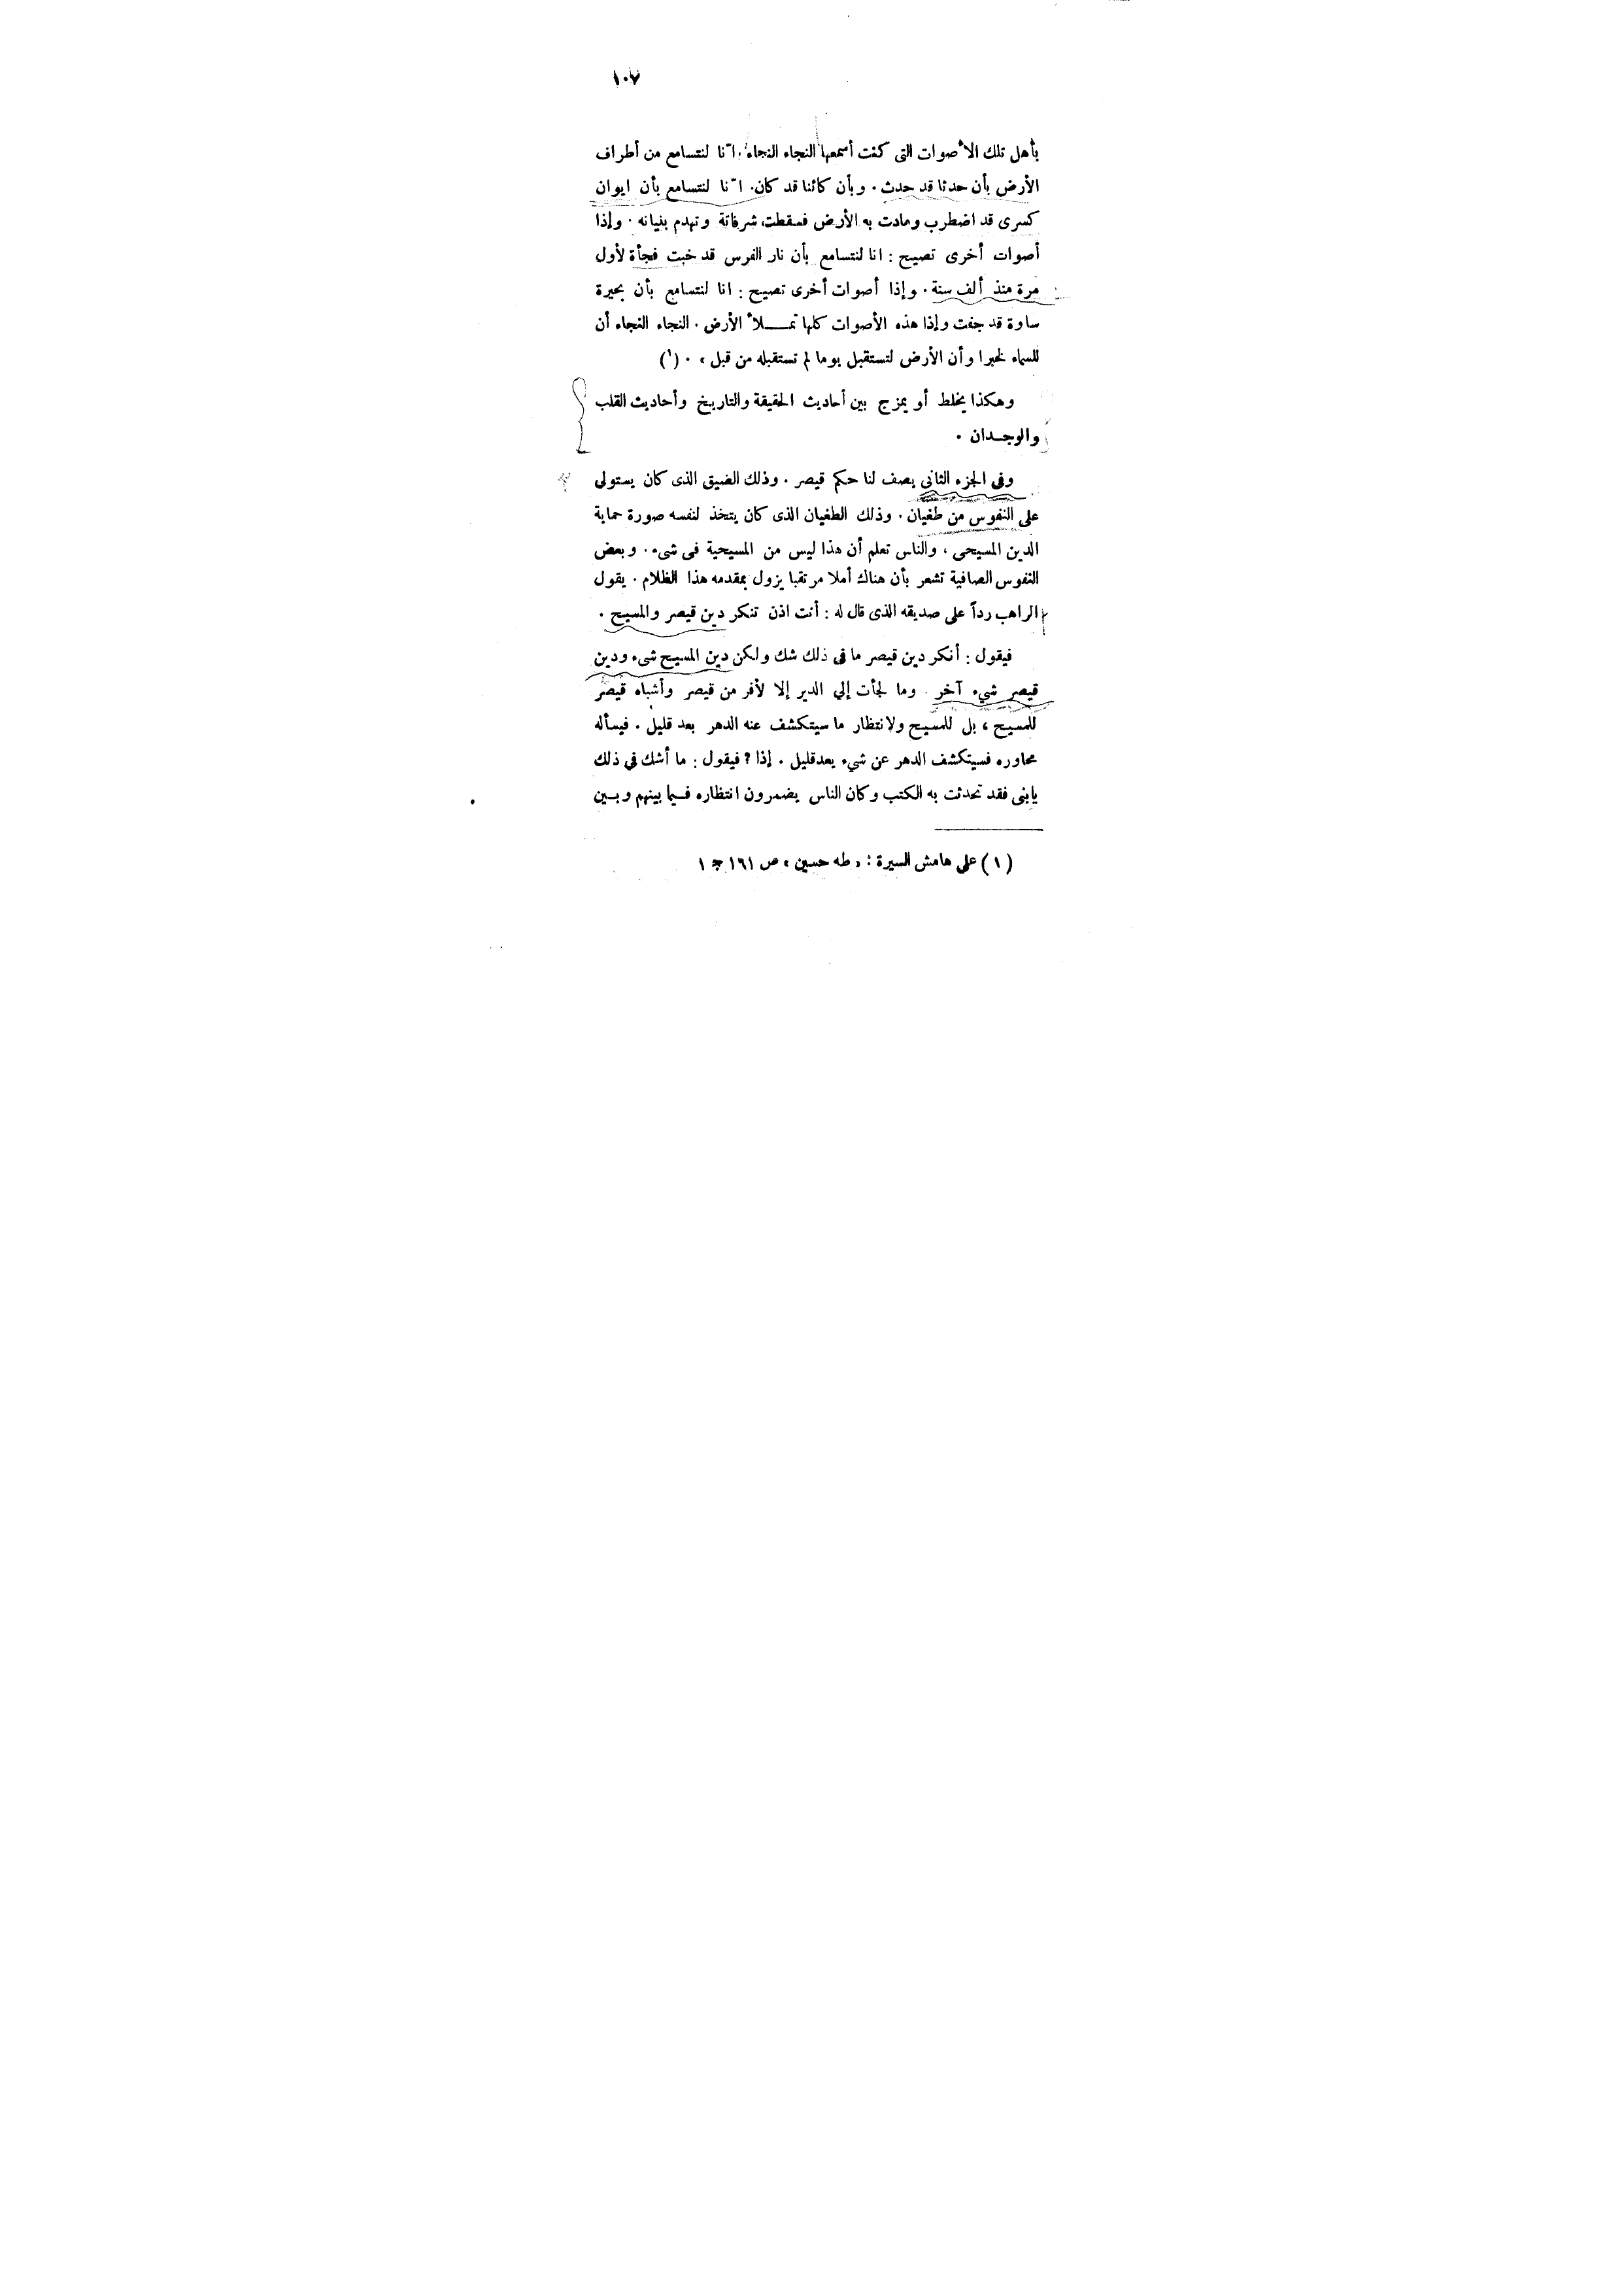 ١٠٧
بأهل تلك الأصوات التى كنت أسمعها النجاء النجاء. انّا لنتسامع من أطراف
الأرض بأن حدثا قد حدث. وبأن كائنا قد كان. انّا لنتسامع بأن ايوان
كسرى قد اضطرب ومادت به الأرض فسقطت شرفاتة وتهدم بنيانه. وإذا
أصوات أخرى تصيح: انا لنتسامع بأن نار الفرس قد خبت فجأة لأول
مرة منذ ألف سنة. وإذا أصوات أخرى تصيح: انا لنتسامع بأن بحيرة
ساوة قد جفت وإذا هذه الأصوات كلها تمــلأ الأرض. النجاء النجاء أن
للسماء لخبرا وأن الأرض لتستقبل يوما لم تستقبله من قبل». (١)
وهكذا يخلط أو يمزج بين أحاديث الحقيقة والتاريخ وأحاديث القلب
والوجـدان.
وفى الجزء الثانى يصف لنا حكم قيصر. وذلك الضيق الذى كان يستولى
على النفوس من طغيان. وذلك الطغيان الذى كان يتخذ لنفسه صورة حماية
الدين المسيحى، والناس تعلم أن هذا ليس من المسيحية فى شىء. وبعض
النفوس الصافية تشعر بأن هناك أملا مرتقبا يزول بمقدمه هذا الظلام. يقول
الراهب رداً على صديقه الذى قال له: أنت اذن تنكر دين قيصر والمسيح.
فيقول: أنكر دين قيصر ما فى ذلك شك ولكن دين المسيح شىء ودين
قيصر شيء آخر. وما لجأت إلي الدير إلا لأفر من قيصر وأشباه قيصر
للمسيح، بل للمسيح ولانتظار ما سيتكشف عنه الدهر بعد قليل. فيسأله
محاوره فسيتكشف الدهر عن شيء بعدقليل. إذا؟ فيقول: ما أشك في ذلك
يابنى فقد تحدثت به الكتب وكان الناس يضمرون انتظاره فـيما بينهم وبـين
(١) على هامش السيرة: «طه حسين» ص ١٦١ جـ ١